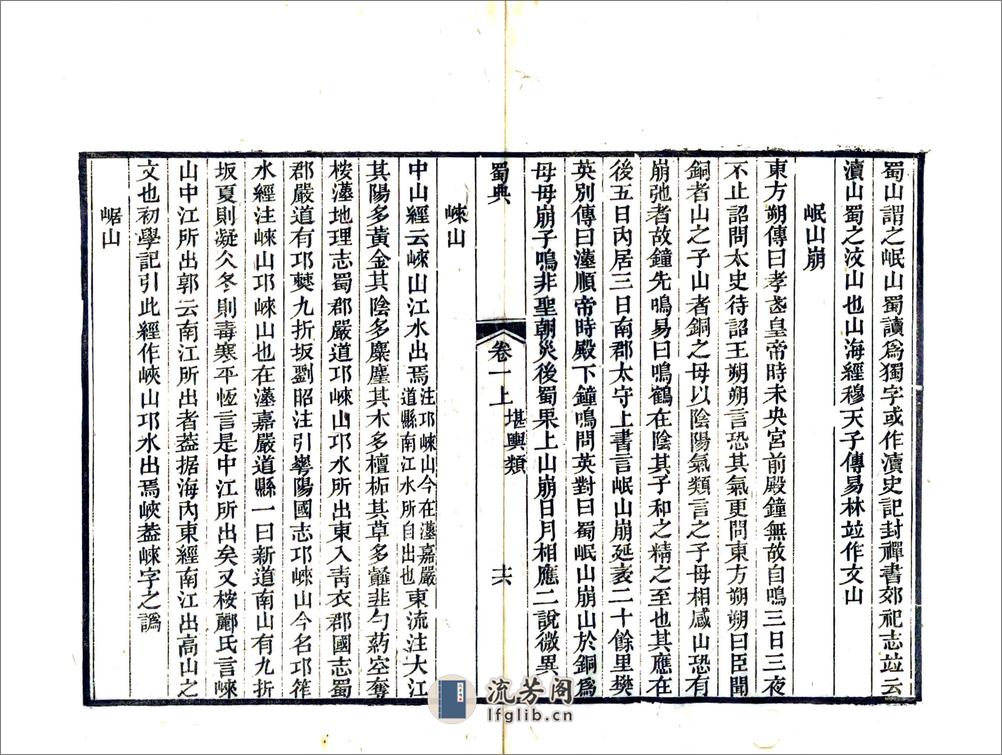 蜀山謂之岷山蜀讀爲獨字或作瀆史記封禪書郊祀志竝云
瀆山蜀之汶山也山海經穆天子傳易林竝作文山
岷山崩
東方朔傳曰孝武皇帝時未央宮前殿鐘無故自鳴三日三夜
不止詔問太史待詔王朔朔言恐其氣更問東方朔朔曰臣聞
銅者山之子山者銅之母以陰陽氣類言之子母相感山恐有
崩弛者故鐘先鳴易曰鳴鶴在陰其子和之精之至也其應在
後五日內居三日南郡太守上書言岷山崩延袤二十餘里樊
英別傳曰漢順帝時殿下鐘鳴問英對曰蜀岷山崩山於銅爲
母母崩子鳴非聖朝災後蜀果上山崩日月相應二說微異
蜀典
卷一上
堪輿類
十六
崍山
中山經云崍山江水出焉注邛崍山今在漢嘉嚴道縣南江水所自出也東流注大江
其陽多黃金其陰多麋麈其木多檀柘其草多韰韭勺葯空奪
桉漢地理志蜀郡嚴道邛崍山邛水所出東入青衣郡國志蜀
郡嚴道有邛僰九折坂劉昭注引華陽國志邛崍山今名邛筰
水經注崍山邛崍山也在漢嘉嚴道縣一曰新道南山有九折
坂夏則凝冰冬則毒寒平恆言是中江所出矣又桉酈氏言崍
山中江所出郭云南江所出者葢据海內東經南江出高山之
文也初學記引此經作峽山邛水出焉峽葢崍字之譌
崌山
流芳阁
lfglib.cn